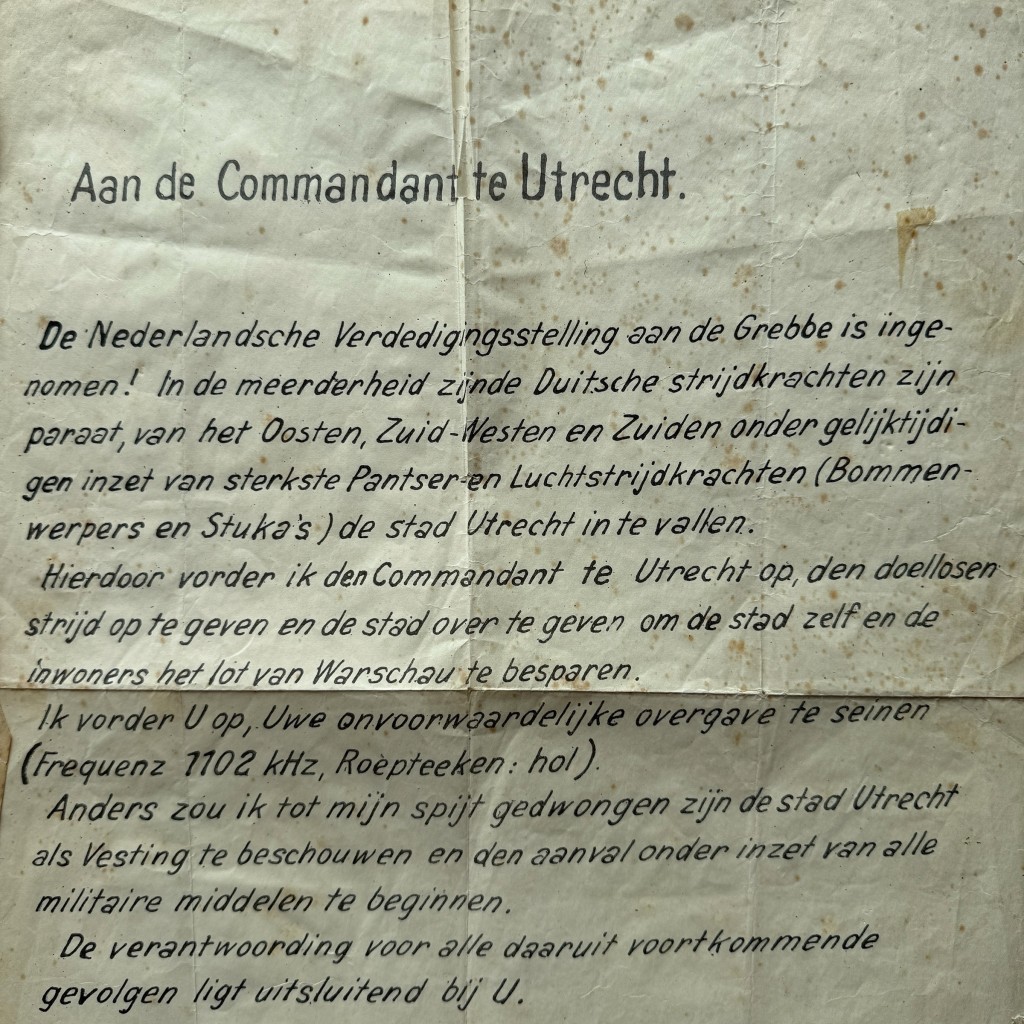 Aan de Commandant te Utrecht.
De Nederlandsche Verdedigingsstelling aan de Grebbe is inge-
nomen! In de meerderheid zijnde Duitsche strijdkrachten zijn
paraat, van het Oosten, Zuid-Westen en Zuiden onder gelijktijdi-
gen inzet van sterkste Pantser-en Luchtstrijdkrachten (Bommen-
werpers en Stuka's) de stad Utrecht in te vallen.
Hierdoor vorder ik den Commandant te Utrecht op, den doellosen
strijd op te geven en de stad over te geven om de stad zelf en de
inwoners het lot van Warschau te besparen.
Ik vorder U op, Uwe onvoorwaardelijke overgave te seinen
(Frequenz 1102 kHz, Roepteeken: hol).
Anders zou ik tot mijn spijt gedwongen zijn de stad Utrecht
als Vesting te beschouwen en den aanval onder inzet van alle
militaire middelen te beginnen.
De verantwoording voor alle daaruit voortkommende
gevolgen ligt uitsluitend bij U.